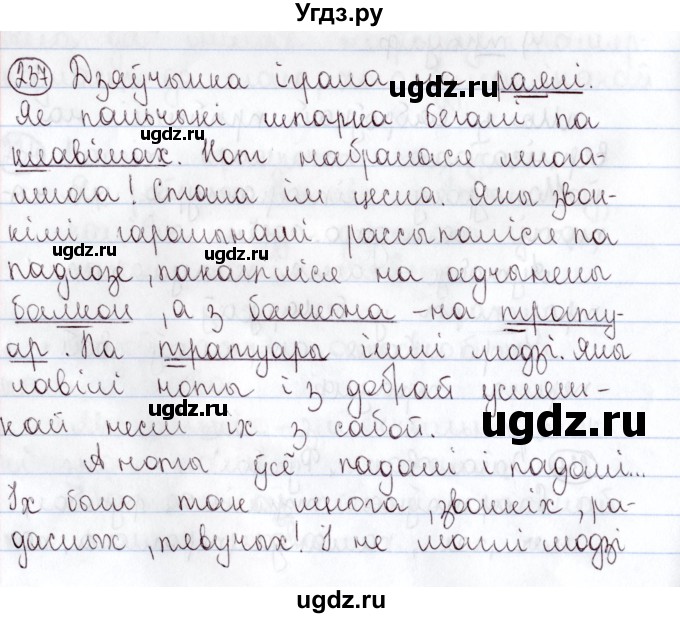 Угдз.ру
257 Дзяўчынка іграла на раялі.
Яе пальчыкі шпарка бегалі па
клавішах. Нот набралася многа-
многа! Стала ім цесна. Яны звон-
кімі гарошынамі рассыпаліся па
падлозе, пакаціліся на адчынены
балкон, а з балкона - на трату-
ар. Па тратуары ішлі людзі. Яны
лавілі ноты і з добрай усмеш-
кай неслі іх з сабой.
А ноты ўсё падалі і падалі...
Іх было так многа, звонкіх, ра-
дасных, пявучых! І не маглі людзі
ugdz.ru
ugdz.ru
ugdz.ru
ugdz.ru
ugdz.ru
ugdz.ru
ugdz.ru
ugdz.ru